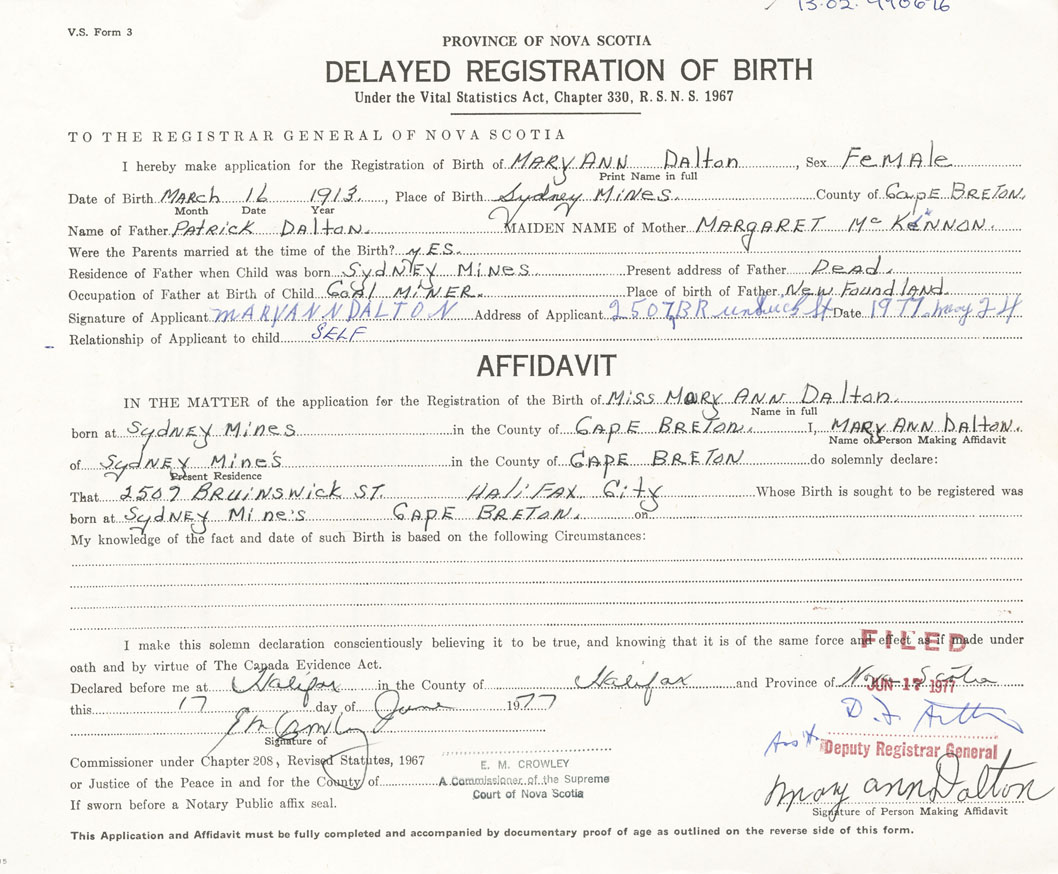 13.02. 990676
V.S. Form 3
PROVINCE OF NOVA SCOTIA
DELAYED REGISTRATION OF BIRTH
Under the Vital Statistics Act, Chapter 330, R. S. N. S. 1967
TO THE REGISTRAR GENERAL OF NOVA SCOTIA
I hereby make application for the Registration of Birth of MARY ANN Dalton, Sex FeMAle
Print Name in full
Date of Birth MARCH 16 1913., Place of Birth Sydney MiNES. County of CApe BRETON.
Month Date Year
Name of Father PATRiCK DAlToN. MAIDEN NAME of Mother MARgARET Mc KiNNON.
Were the Parents married at the time of the Birth? yES.
Residence of Father when Child was born SYdNEY MiNES Present address of Father Dead.
Occupation of Father at Birth of Child COAl MiNER. Place of birth of Father New Foundland
Signature of Applicant MARYANNDALTON Address of Applicant 2507 BRunswick St Date 1977. may 24
Relationship of Applicant to child SELF
AFFIDAVIT
IN THE MATTER of the application for the Registration of the Birth of Miss MARy ANN DAlton.
Name in full
born at SydNEy MiNES in the County of CAPE BRETON. I, MARY ANN DAlTON.
Name of Person Making Affidavit
of SydNEY MiNe's in the County of CAPE BRETON do solemnly declare:
Present Residence
That 2507 BRUiNSWiCK ST. HAliFAX CiTy Whose Birth is sought to be registered was
born at SydNEy MiNe's CAPE BRETON. on
My knowledge of the fact and date of such Birth is based on the following Circumstances:
I make this solemn declaration conscientiously believing it to be true, and knowing that it is of the same force and effect as if made under
FILED
oath and by virtue of The Canada Evidence Act.
Declared before me at Halifax in the County of Halifax and Province of Nova Scotia
JUN 17 1977
this 17 day of June 1977
Signature of
Deputy Registrar General
Commissioner under Chapter 208, Revised Statutes, 1967
E. M. CROWLEY
or Justice of the Peace in and for the County of A Commissioner of the Supreme
Court of Nova Scotia
If sworn before a Notary Public affix seal.
mary ann Dalton
Signature of Person Making Affidavit
This Application and Affidavit must be fully completed and accompanied by documentary proof of age as outlined on the reverse side of this form.